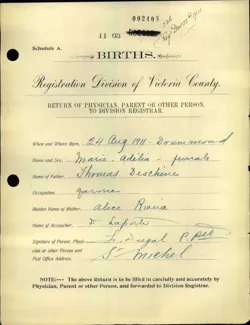 002103
11 03
Schedule A.
BIRTHS.
Registration Division of Victoria County.
RETURN OF PHYSICIAN, PARENT OR OTHER PERSON,
TO DIVISION REGISTRAR.
When and Where Born, 24 Aug 1911 - Drummond
Name and Sex, Marie Adelia - female
Name of Father, Thomas Deschene
Occupation, farmer
Maiden Name of Mother, Alice
Name of Accoucher, Dr Laporte
Signature of Parent, Physi-
cian or other Person and
Post Office Address. L. Dugal P. Pst
St Michel
NOTE:— The above Return is to be filled in carefully and accurately by
Physician, Parent or other Person, and forwarded to Division Registrar.